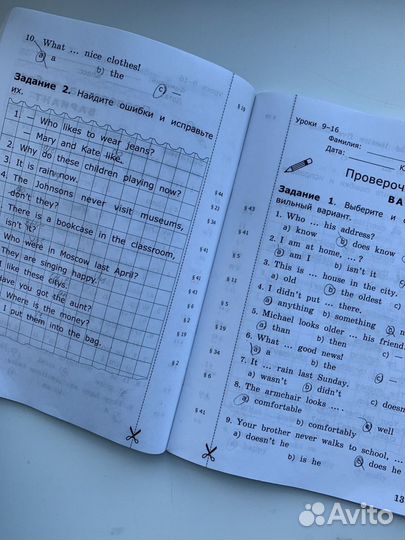 10. What ... nice clothes!
a) a b) the c) —
Задание 2. Найдите ошибки и исправьте
их.
1. — Who likes to wear jeans?
— Mary and Kate like.
2. Why do these children playing now?
3. It is rain now.
4. The Johnsons never visit museums,
don't they?
There is a bookcase in the classroom,
isn't it?
Who were in Moscow last April?
They are singing happy.
I like these city.
Have you got the aunt?
Where is the money?
I put them into the bag.
§ 19
§ 44
§ 23
§ 34
§ 41
§ 41
§ 5
§ 19
§ 2
Уроки 9–16
Фамилия:
Дата:
Провероч
ВА
Задание 1. Выберите и о
вильный вариант.
1. Who ... his address?
a) know b) does know
2. I am at home, ... ?
a) am I b) isn't it
3. This is ... house in the city.
a) old b) the oldest c)
4. I didn't put ... there.
a) anything b) something
5. Michael looks older ... his friend.
a) than b) then
6. What ... good news!
a) a b) the c) —
7. It ... rain last Sunday.
a) wasn't b) didn't c) doesn
8. The armchair looks ... .
a) comfortable
b) comfortably c) well
9. Your brother never walks to school, ...
a) doesn't he
b) is he c) does he
§ 43
§ 43
§ 5
§ 41
§ 6
§ 2
§ 41
13
Avito